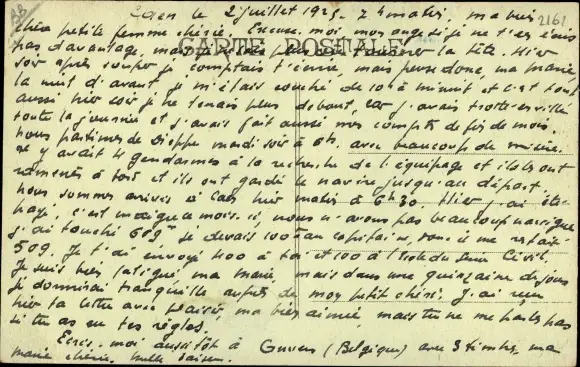 Caen le 2 juillet 1925 - 7h matin, ma bien
2161
chère petite femme chérie. Excuse-moi, mon ange si je t'ai écris
pas davantage, mais je ... la tête. Hier
CARTE POSTALE
soir après souper je comptais t'écrire, mais pense donc, ma Marie
la nuit d'avant je m'étais couché de 10h à minuit et c'est tout
aussi hier soir je ne tenais plus debout, car j'avais trotté en ville
toute la journée et j'avais fait aussi mes comptes de fin de mois.
Nous partîmes de Dieppe mardi soir à 6h. avec beaucoup de misère.
Il y avait 4 gendarmes à la recherche de l'équipage et ils ont
ramenés à bord et ils ont gardé le navire jusqu'au départ.
Nous sommes arrivés à Caen hier matin à 6h30. Hier j'ai été
payé, c'est maigre ce mois-ci, nous n'avons pas beaucoup navigué
j'ai touché 609 je devais 100 au capitaine, donc il me restait
509. Je t'ai envoyé 400 à toi et 100 à
Je suis bien fatigué, ma Marie, mais dans une quinzaine de jours
je dormirai tranquille auprès de mon petit chéri. J'ai reçu
hier ta lettre avec plaisir, ma bien aimée, mais tu ne me parles pas
si tu as eu tes règles.
Ecris-moi aussitôt à (Belgique) avec 3 timbres, ma
Marie chérie. Mille baisers.